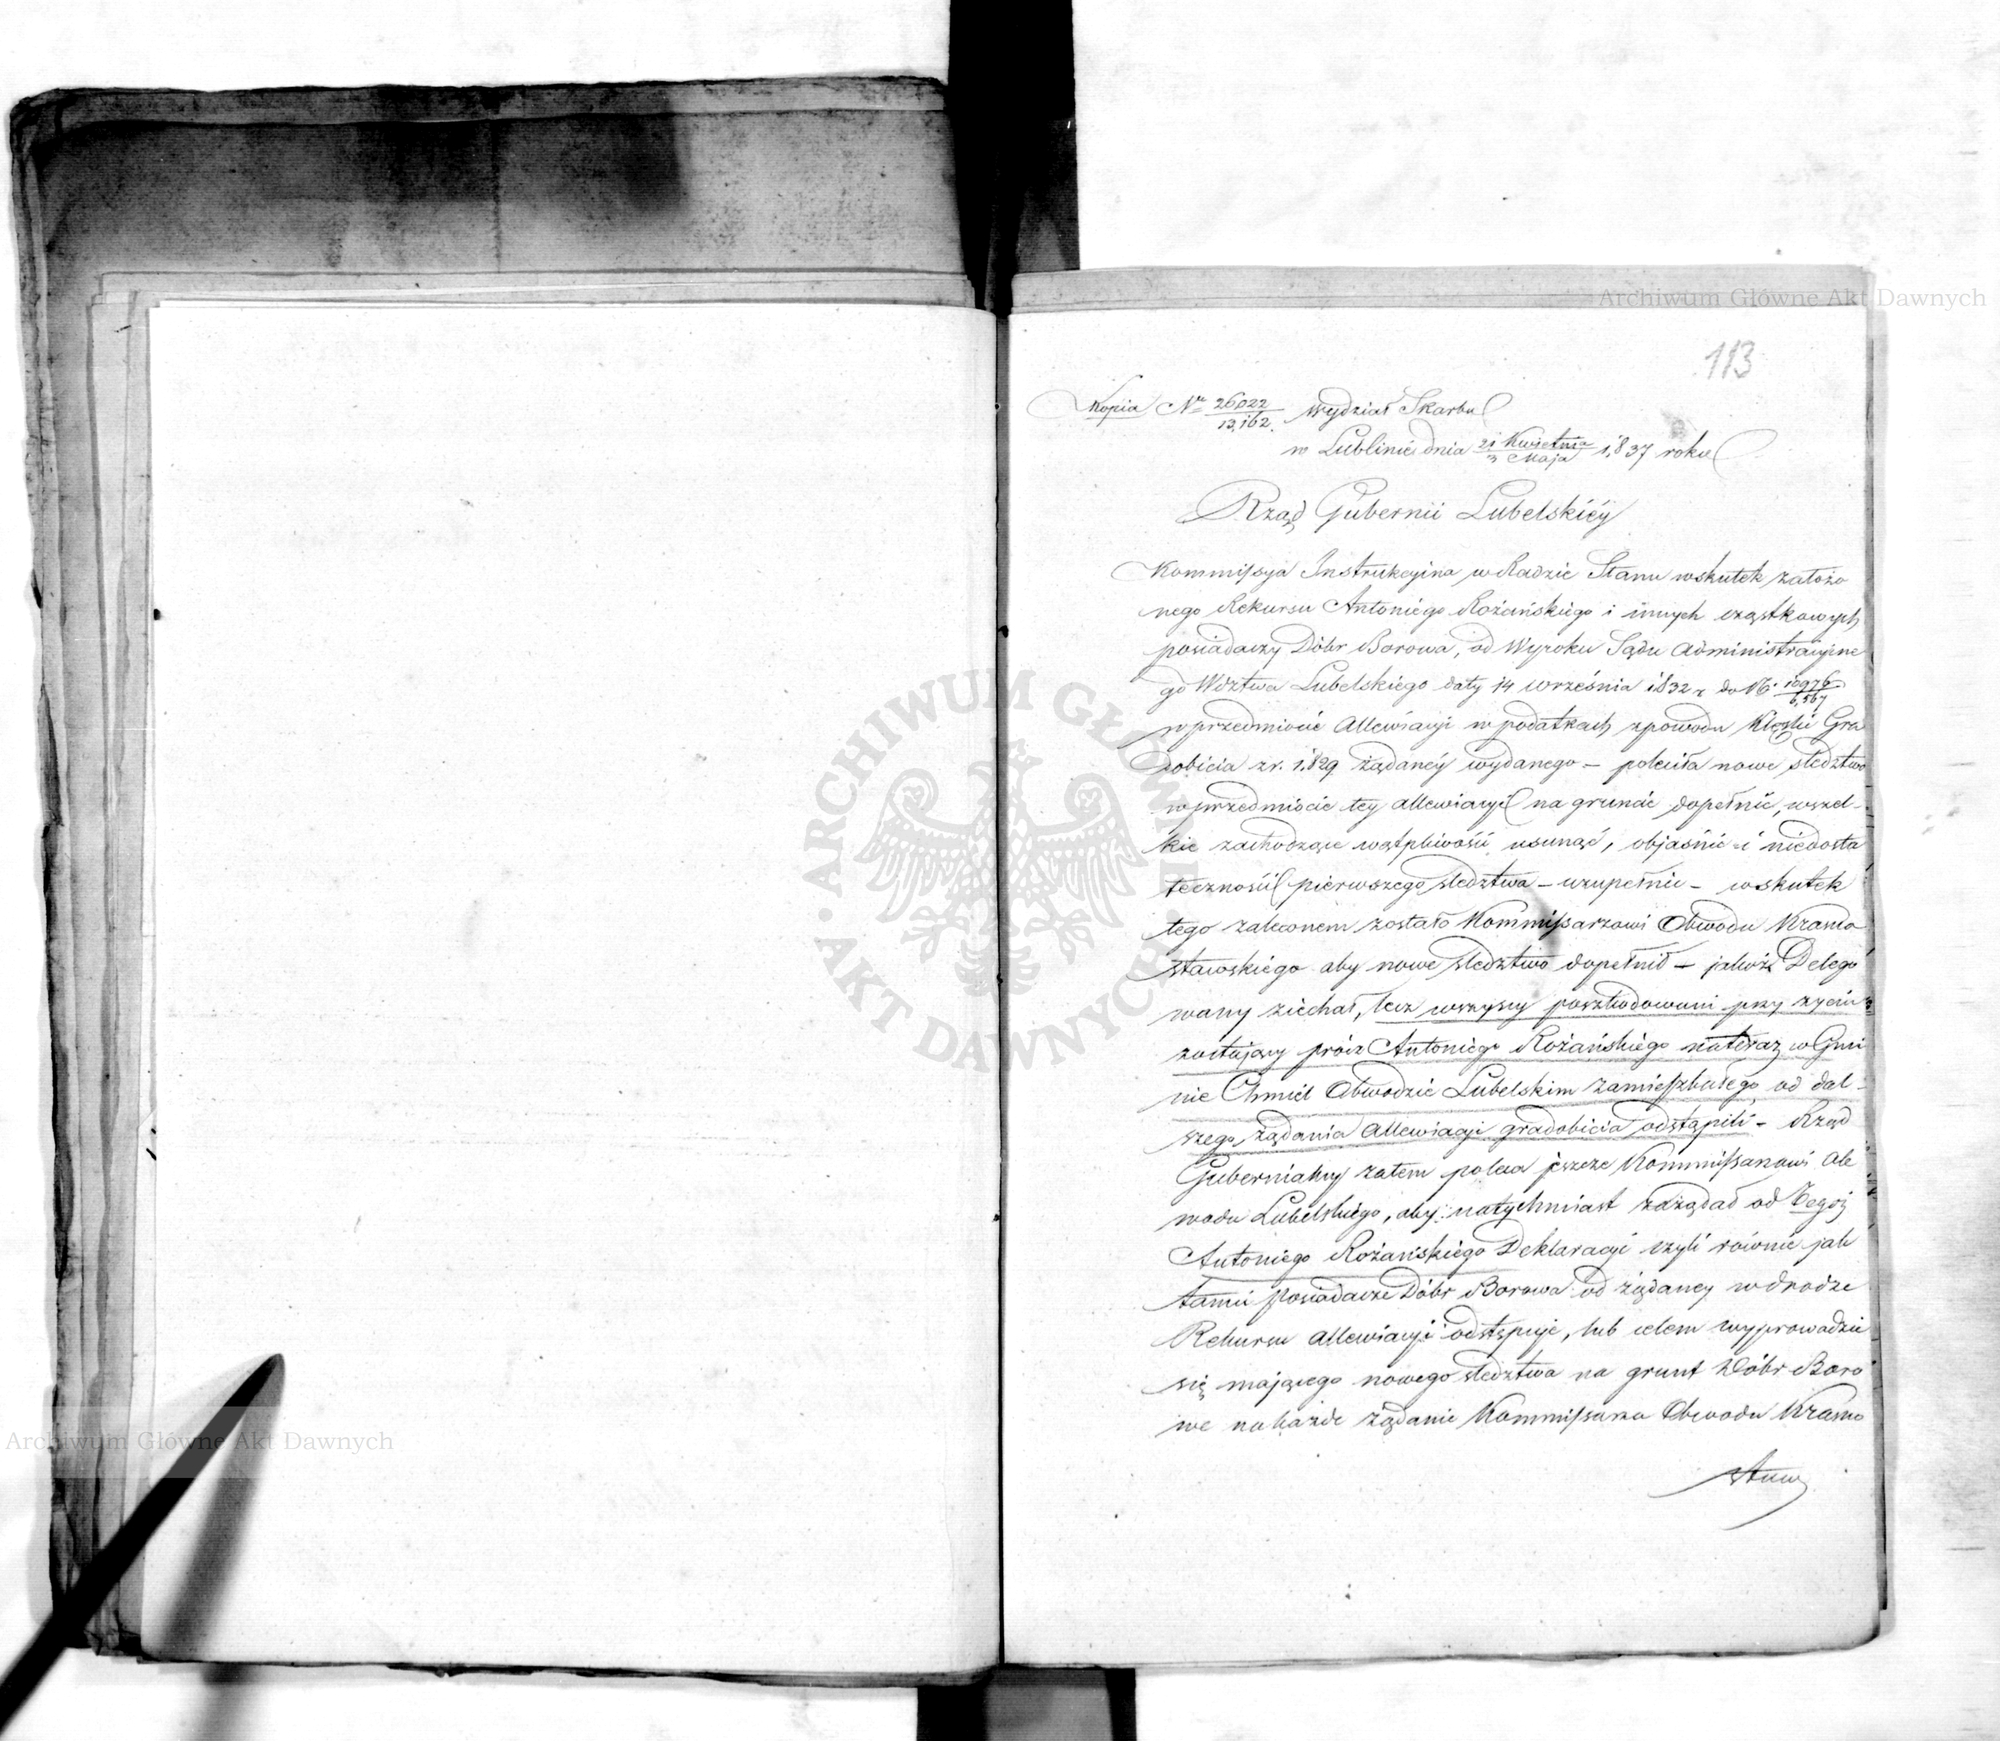 113
Kopia Nr 26022/13,162. Wydział Skarbu
w Lublinie dnia 21 Kwietnia/3 Maja 1,837 roku
Rząd Gubernii Lubelskiéy
Kommissya Instrukcyina w Radzie Stanu wskutek założo
nego Rekursu Antoniego Rożańskiego i innych cząstkowych
posiadaczy Dóbr Borowa, od Wyroku Sądu Administracyine
go Wdztwa Lubelskiego daty 14 września 1832 r do N. 10976/6,567
w przedmiocie allewiacyi w podatkach zpowodu Klęski Gra
dobicia z r. 1,829 żądanéy wydanego – poleciła nowe sledztwo
w przedmiocie tey allewiacyi na gruncie dopełnić, wszel-
kie zachodzące wątpliwości usunąć, objaśnić i niedosta
teczności pierwszego sledztwa – uzupełnić – wskutek
tego zaleconem zostało Kommissarzowi Obwodu Krasno
stawskiego aby nowe sledztwo dopełnił – jakoż Delego
wany ziechał, lecz wszyscy poszkodowani przy życiu
zostający prócz Antoniego Rożańskiego nateraz w Gmi
nie Chmiel Obwodzie Lubelskim zamieszkałego, od dal-
szego żądania allewiacyi gradobicia odstąpili – Rząd
Gubernialny zatem poleca jeszcze Kommissarzowi Ob
wodu Lubelskiego, aby natychmiast zażądał od Tegoż
Antoniego Rożańskiego Deklaracyi czyli równie jak
tamci Posiadacze Dóbr Borowa od żądaney w drodze
Rekursu allewiacyi odstępuje, lub celem wyprowadzić
się mającego nowego sledztwa na grunt Dóbr Boro
we na każde żądanie Kommissarza Obwodu Krasno
staws
ARCHIWUM GŁÓWNE AKT DAWNYCH
Archiwum Główne Akt Dawnych
Archiwum Główne Akt Dawnych